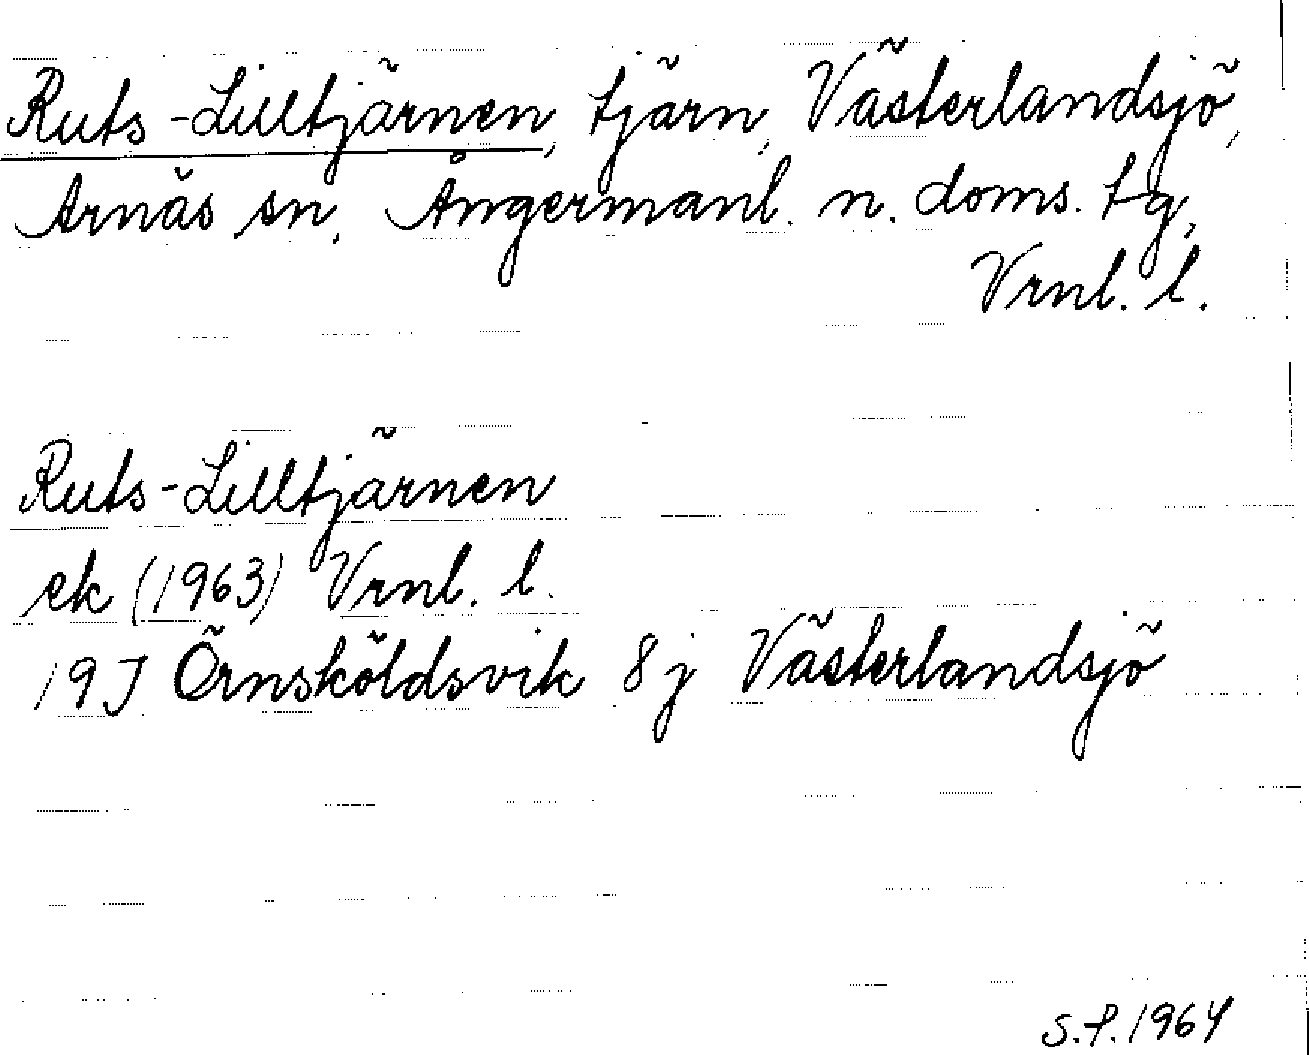 Ruts-Lilltjärnen, tjärn, Västerlandsjö,
Arnäs sn, Ångermanl. n. doms. tg,
Vrnl. l.
Ruts-Lilltjärnen
ek (1963) Vrnl. l.
19J Örnsköldsvik 8j Västerlandsjö
S.P. 1964